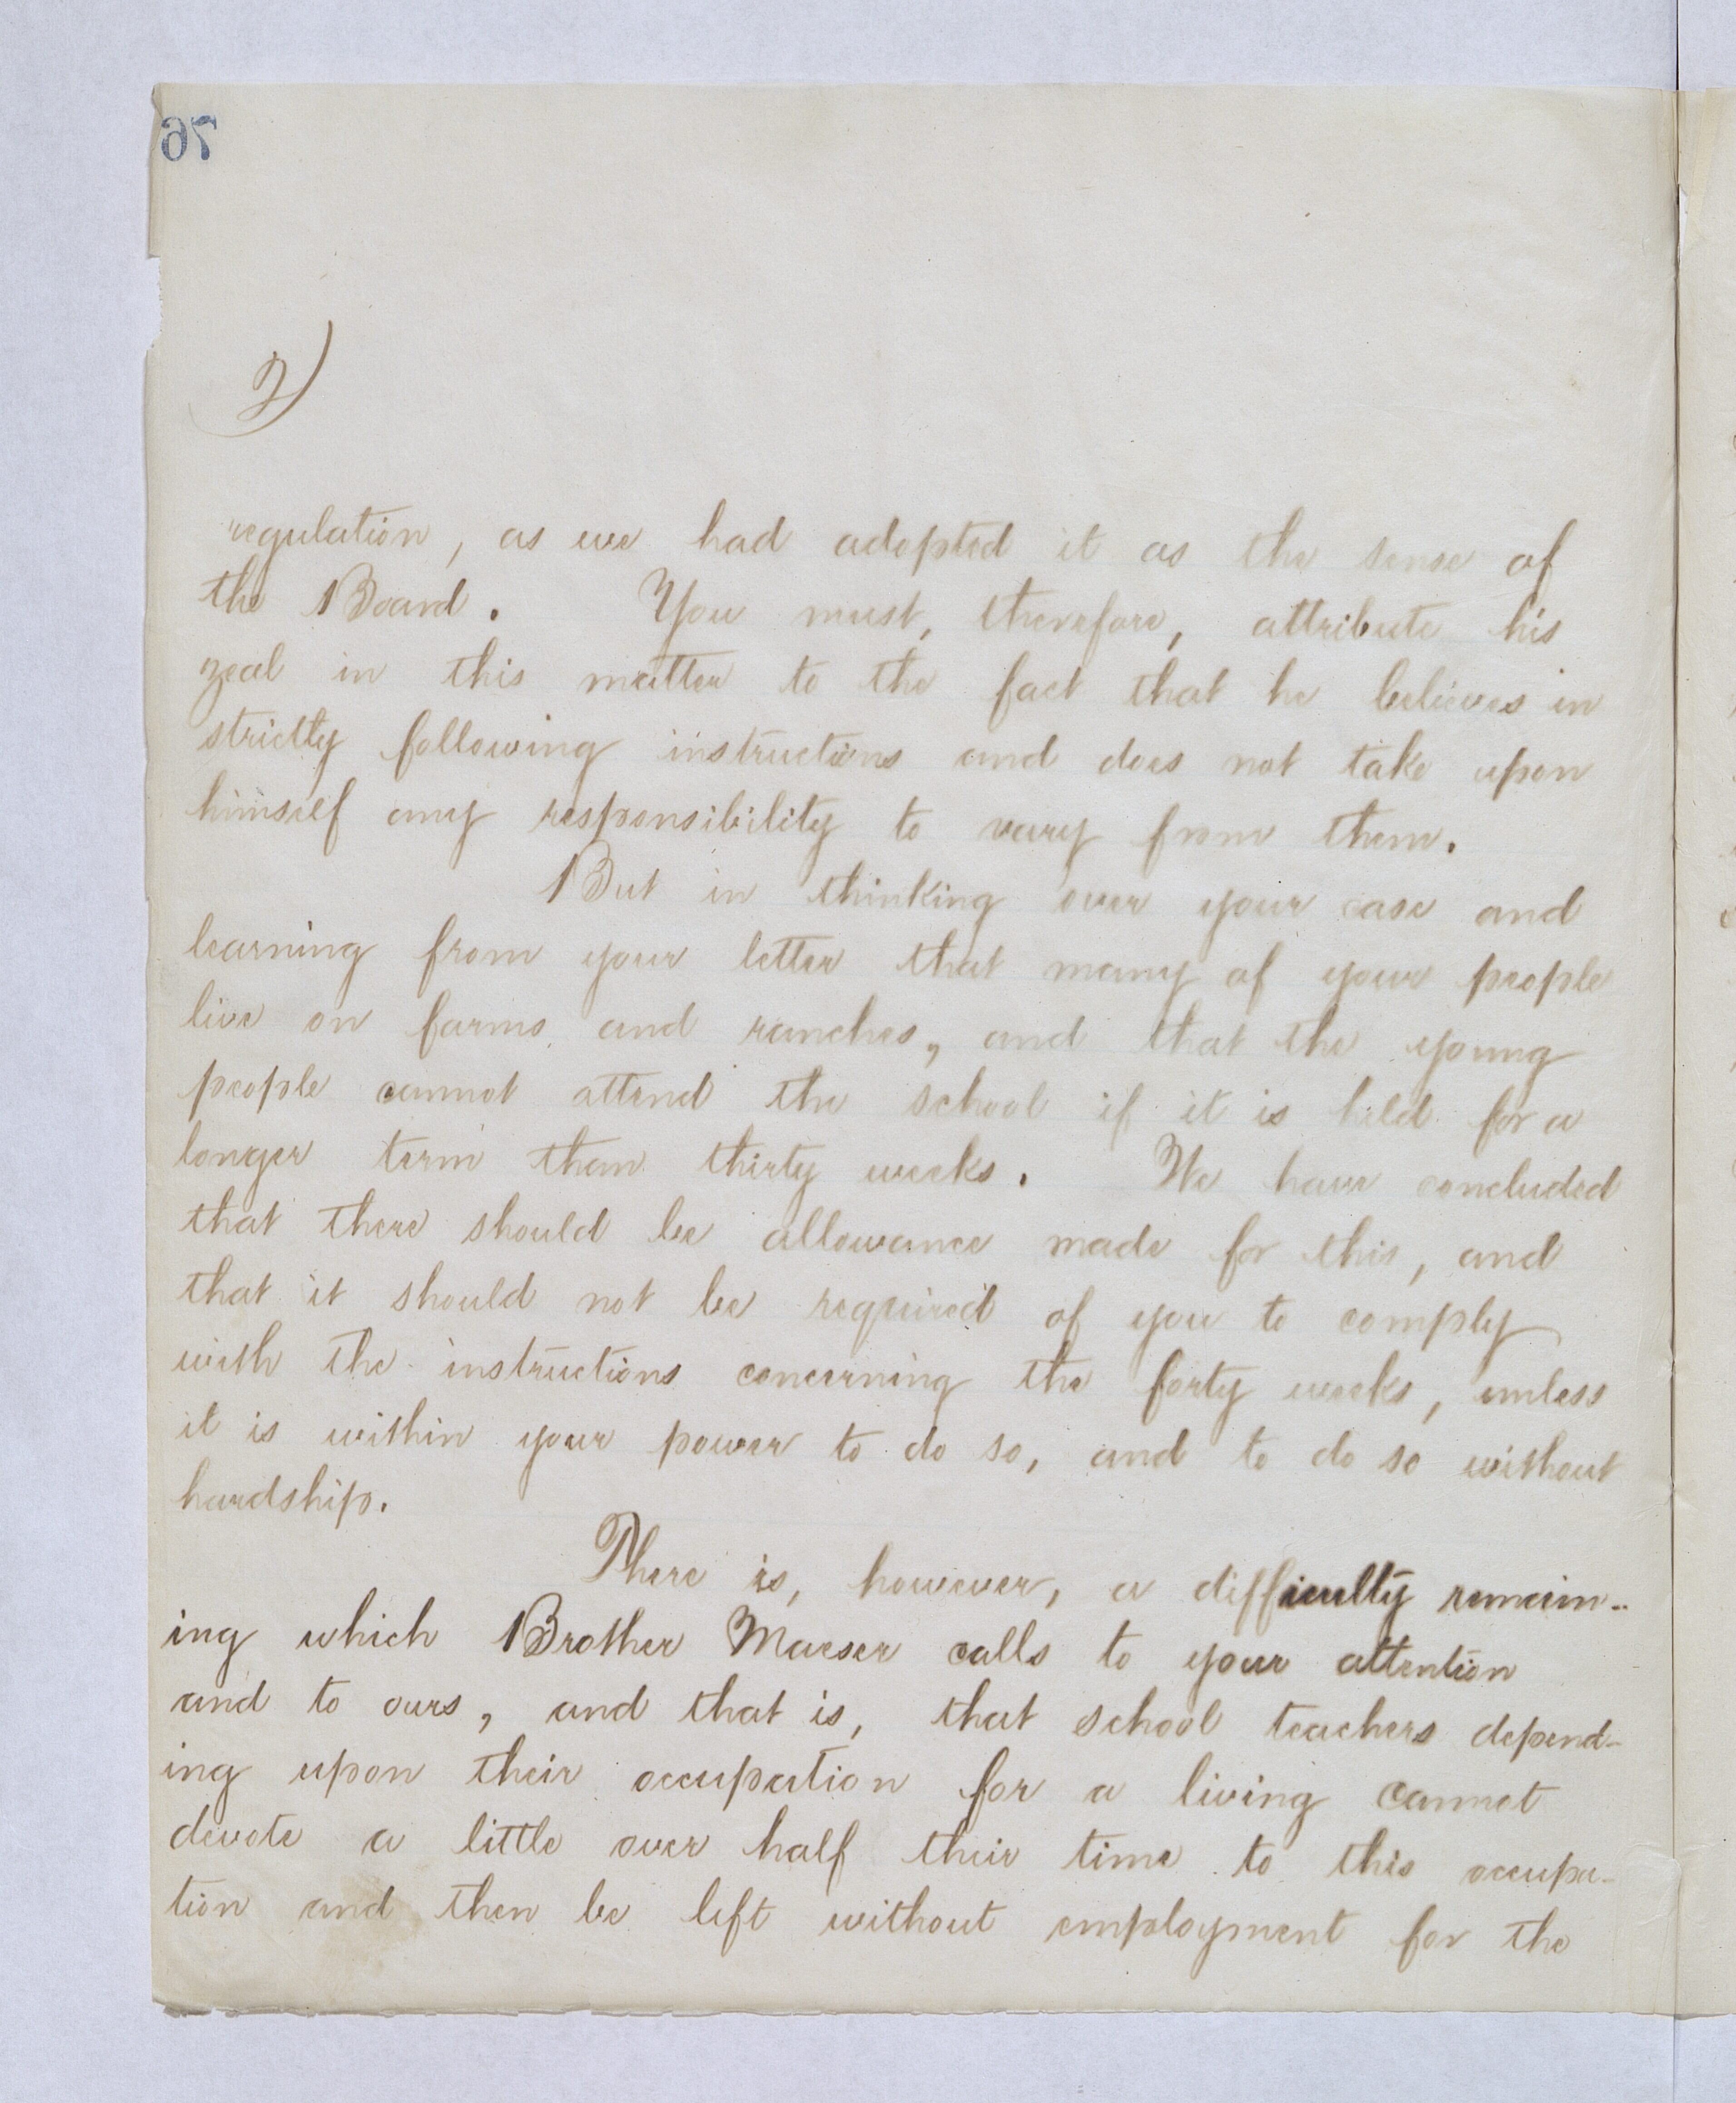 76
2)
regulation, as we had adopted it as the sense of
the Board. You must, therefore, attribute his
zeal in this matter to the fact that he believes in
strictly following instructions and does not take upon
himself any responsibility to vary from them.
But in thinking over your case and
learning from your letter that many of your people
live on farms and ranches, and that the young
people cannot attend the school if it is held for a
longer term than thirty weeks. We have concluded
that there should be allowance made for this, and
that it should not be required of you to comply
with the instructions concerning the forty weeks, unless
it is within your power to do so, and to do so without
hardship.
There is, however, a difficulty remain-
ing which Brother Maeser calls to your attention
and to ours, and that is, that school teachers depend-
ing upon their occupation for a living cannot
devote a little over half their time to this occupa-
tion and then be left without employment for the